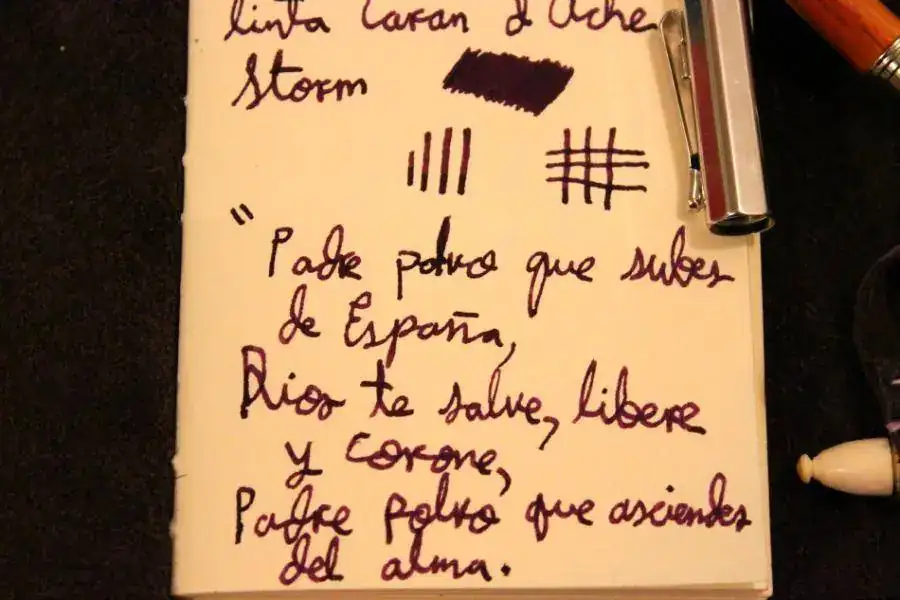 tinta Caran d'Ache
Storm
"Padre polvo que subes
de España,
Dios te salve, libere
y corone,
Padre polvo que asciendes
del alma.